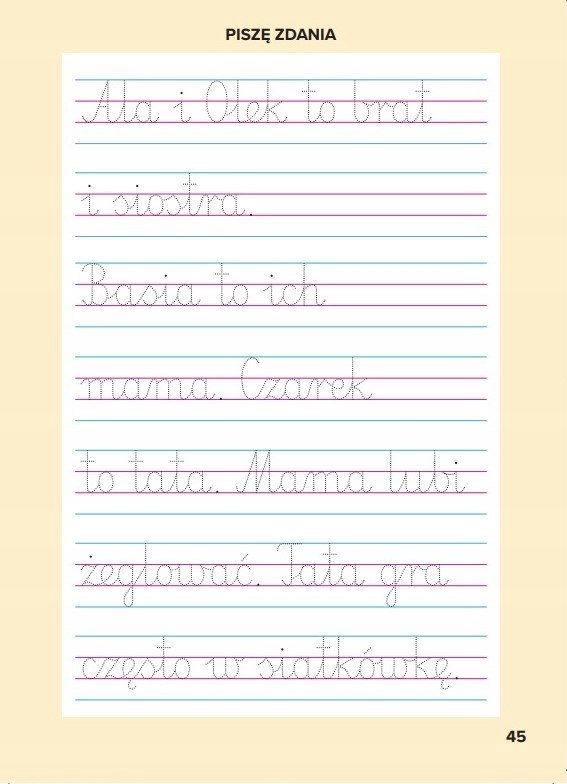 PISZĘ ZDANIA
Ala i Olek to brat
i siostra.
Basia to ich
mama. Czarek
to tata. Mama lubi
żeglować. Tata gra
często w siatkówkę.
45